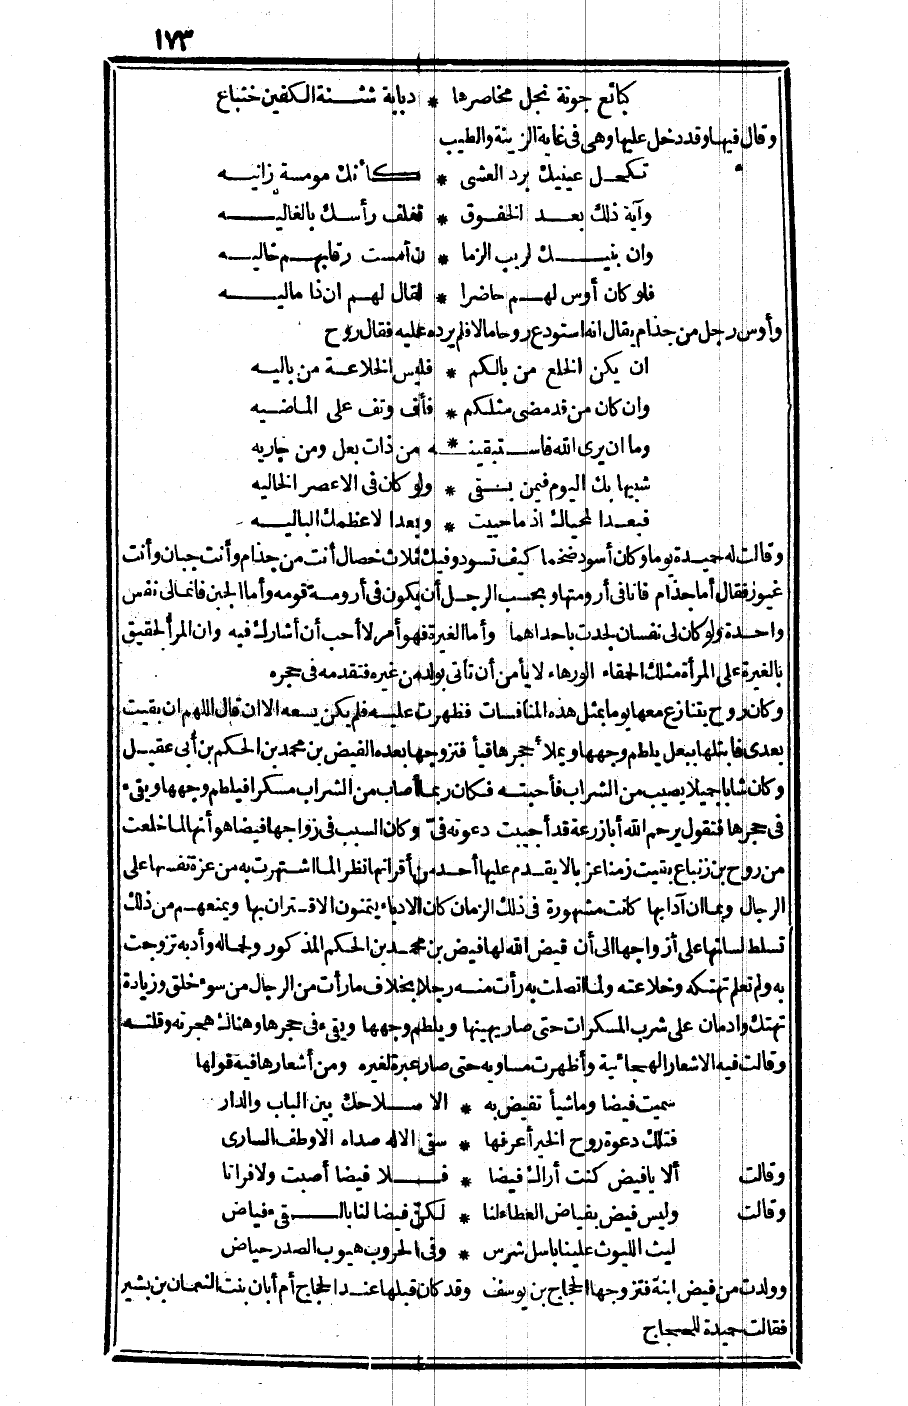 ١٧٣
كبائع جونة نجل مخاصرها * دبابة شثنة الكفين خثباع
وقال فيها وقد دخل عليها وهى فى غاية الزينة والطيب
تكحل عينيك برد العشى * كأنك مومسة زانيه
وآية ذلك بعد الخفوق * تغلف رأسك بالغاليه
وان بنيك لريب الزما * ن أمست رقابهم خاليه
فلو كان أوس لهم حاضرا * لقال لهم ان ذا ماليه
وأوس رجل من جذام يقال انه استودع روحا مالا فلم يرده عليه فقال روح
ان يكن الخلع من بالكم * فليس الخلاعة من باليه
وان كان من قد مضى مثلكم * فأف وتف على الماضيه
وما ان يرى الله فاستبقينه * من ذات بعل ومن جاريه
شبيها بك اليوم فيمن بقى * ولو كان فى الاعصر الخاليه
فبعدا لمحياك اذ ما حييت * وبعدا لاعظمك الباليه
وقالت له حميدة يوما وكان أسود ضخما كيف تسود وفيك ثلاث خصال أنت من جذام وأنت جبان وأنت
غيور فقال أما جذام فانا فى أرومتها وبحسب الرجل أن يكون فى أرومة قومه وأما الجبن فانما لى نفس
واحدة ولو كان لى نفسان لجدت باحداهما وأما الغيرة فهو أمر لا أحب أن أشارك فيه وان المرأ لحقيق
بالغيرة على المرأة مثلك الحمقاء الورهاء لا يأمن أن تأتى بولد من غيره فتقدمه فى حجره
وكان روح يتنازع معها يوما بمثل هذه المنافسات فظهرت عليه فلم يكن يسعه الا ان قال اللهم ان بقيت
بعدى فابتلها ببعل يلطم وجهها ويملأ حجرها قيأ فتزوجها بعده الفيض بن محمد بن الحكم بن أبى عقيل
وكان شابا جميلا يصيب من الشراب فأحبته فكان ربما أصاب من الشراب مسكرا فيلطم وجهها ويقىء
فى حجرها فتقول يرحم الله أبا زرعة قد أجيبت دعوته فىّ وكان السبب فى زواجها فيضا هو أنها لما خلعت
من روح بن زنباع بقيت زمنا عزبا لا يقدم عليها أحد من أقرانها نظرا لما اشتهرت به من عزة نفسها على
الرجال وبما ان آدابها كانت مشهورة فى ذلك الزمان كان الادباء يتمنون الاقتران بها ويمنعهم من ذلك
تسلط لسانها على أزواجها الى أن قيض الله لها فيض بن محمد بن الحكم المذكور ولجماله وأدبه تزوجت
به ولم تعلم تهتكه وخلاعته ولما اتصلت به رأت منه رجلا بخلاف ما رأت من الرجال من سوء خلق وزيادة
تهتك وادمان على شرب المسكرات حتى صار يهينها ويلطم وجهها ويقىء فى حجرها وهناك هجرته وقلته
وقالت فيه الاشعار الهجائية وأظهرت مساويه حتى صار عبرة لغيره ومن أشعارها فيه قولها
سميت فيضا وما شيأ تفيض به * الا سلاحك بين الباب والدار
فتلك دعوة روح الخير أعرفها * سقى الاله صداه الاوطف السارى
وقالت ألا يا فيض كنت أراك فيضا * فلا فيضا أصبت ولا فراتا
وقالت وليس فيض بفياض العطاء لنا * لكنّ فيضا لنا بالقىء فياض
ليث الليوث علينا باسل شرس * وفى الحروب هيوب الصدر حياض
وولدت من فيض ابنة فتزوجها الحجاج بن يوسف وقد كان قبلها عند الحجاج أم أبان بنت النعمان بن بشير
فقالت حميدة للحجاج